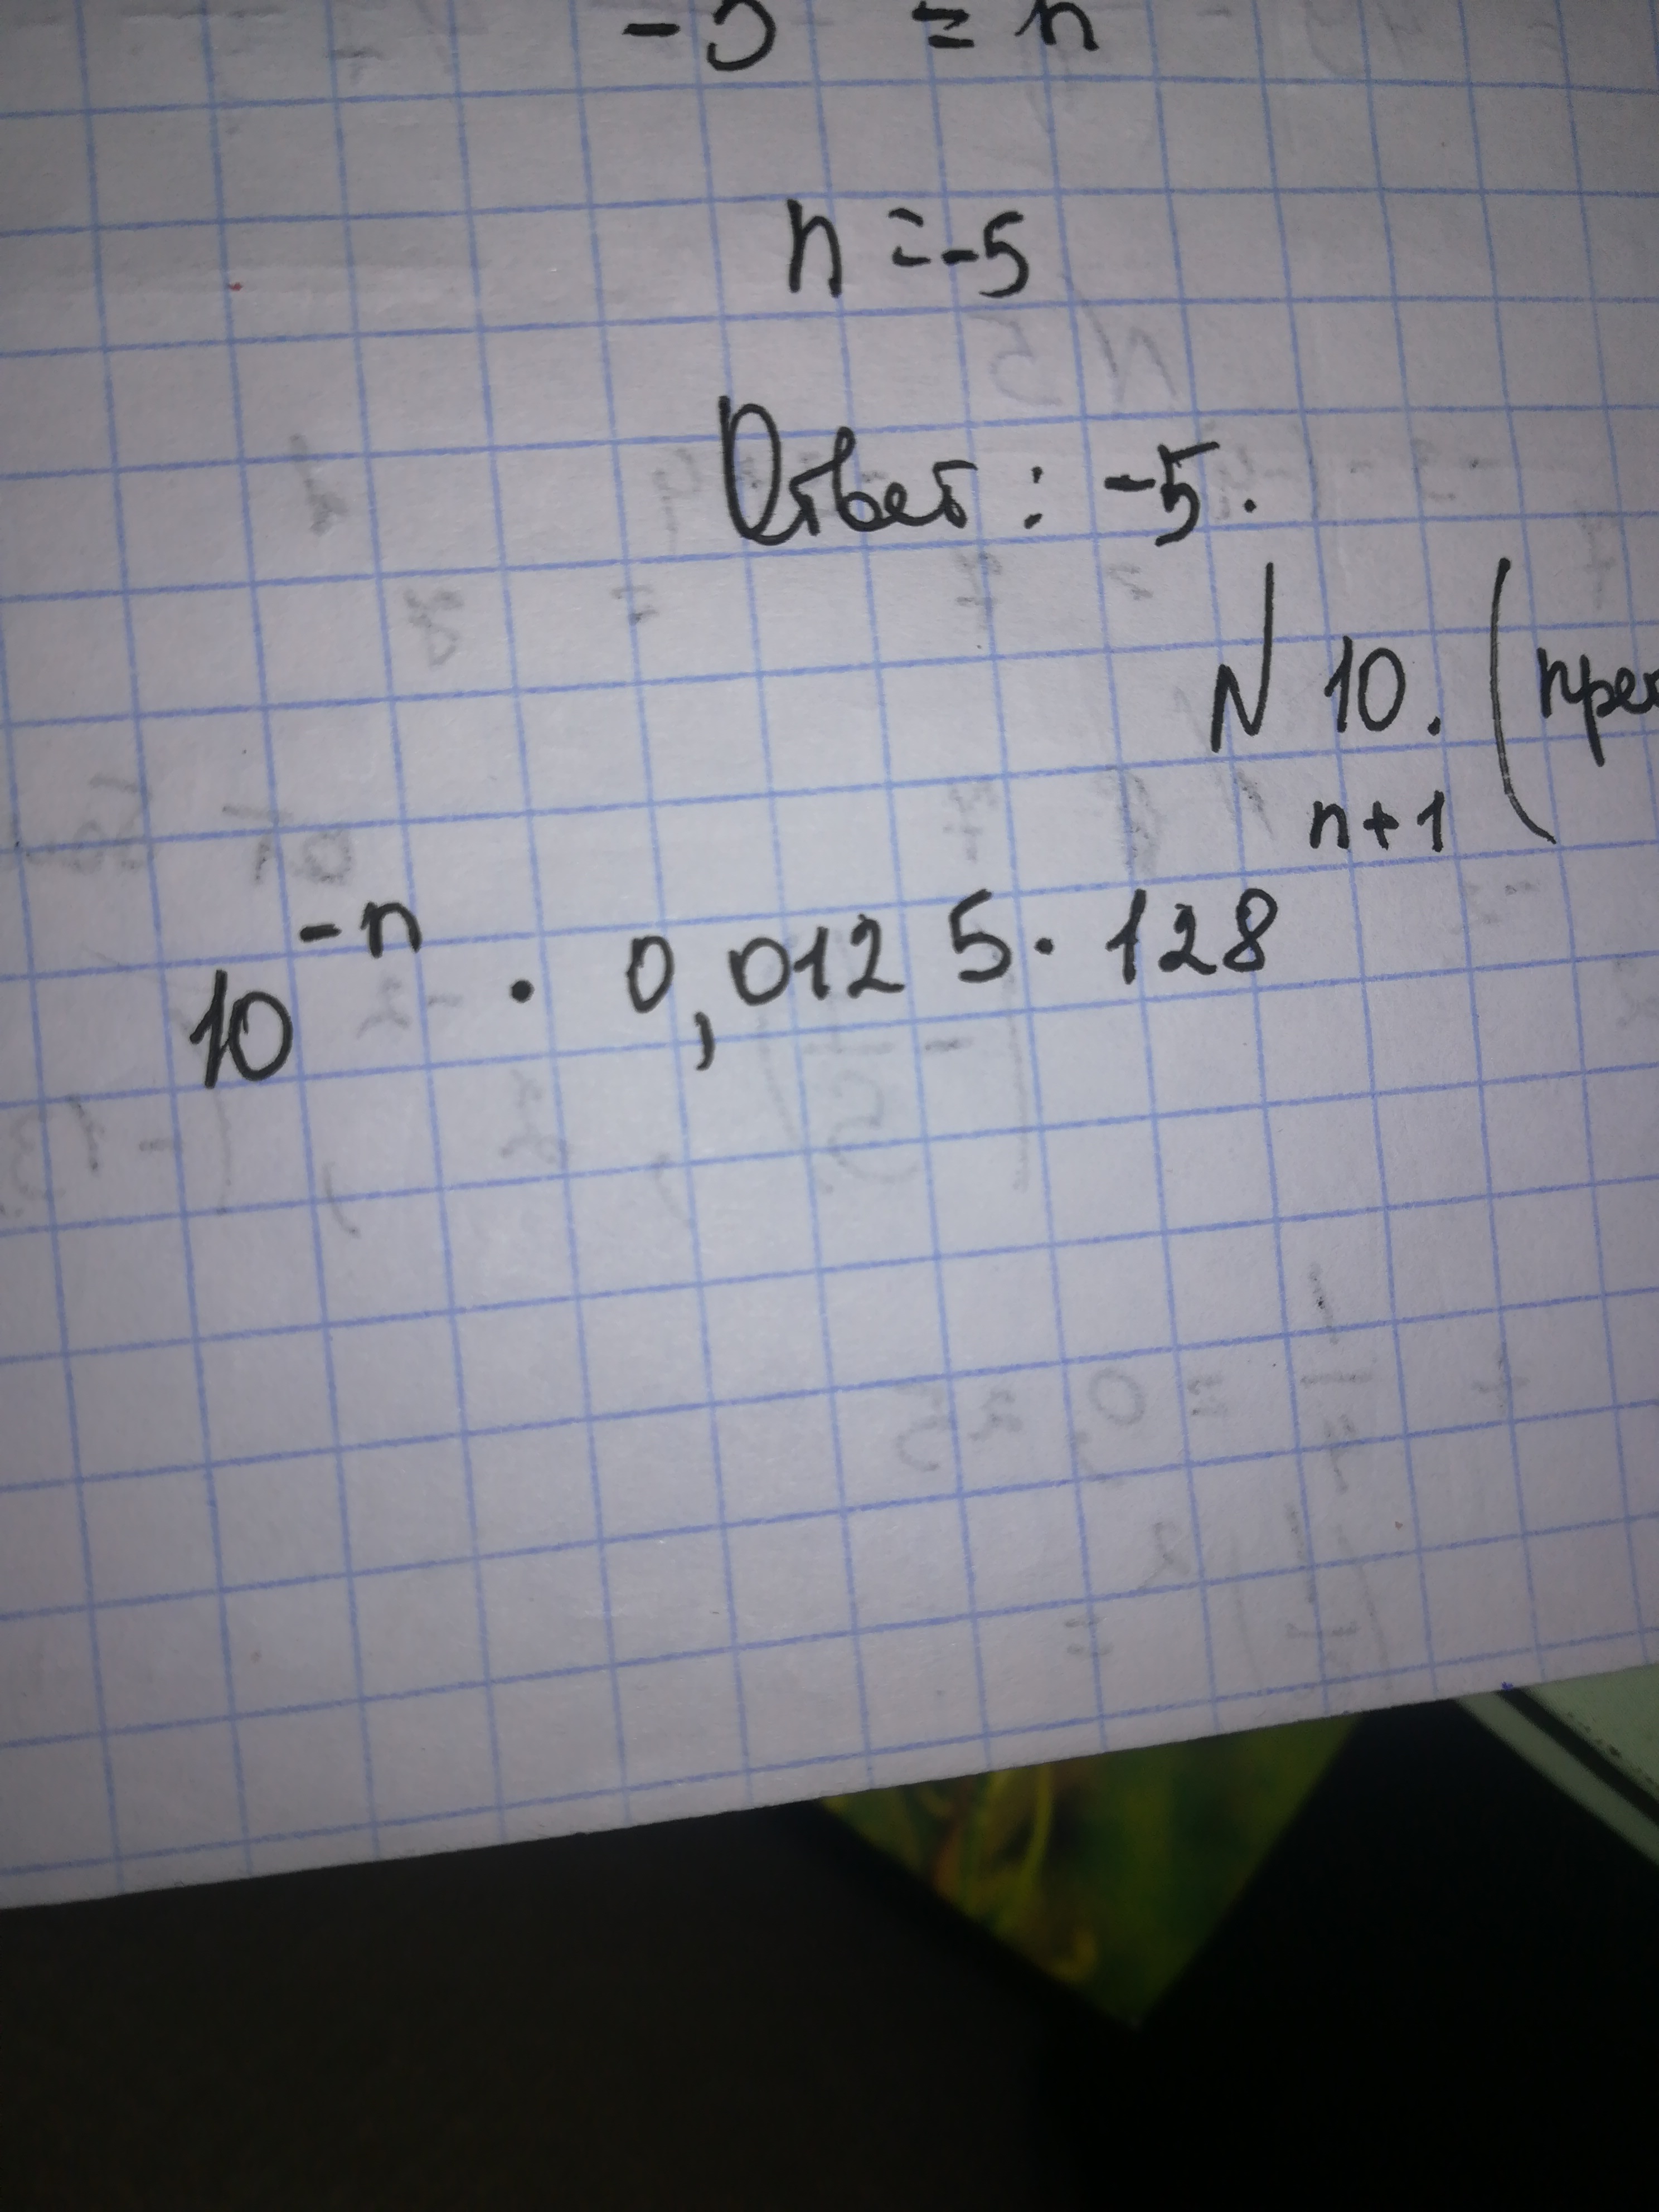 = n
n = -5
Ответ: -5.
N 10. (
10^{-n} · 0,0125 · 128^{n+1}